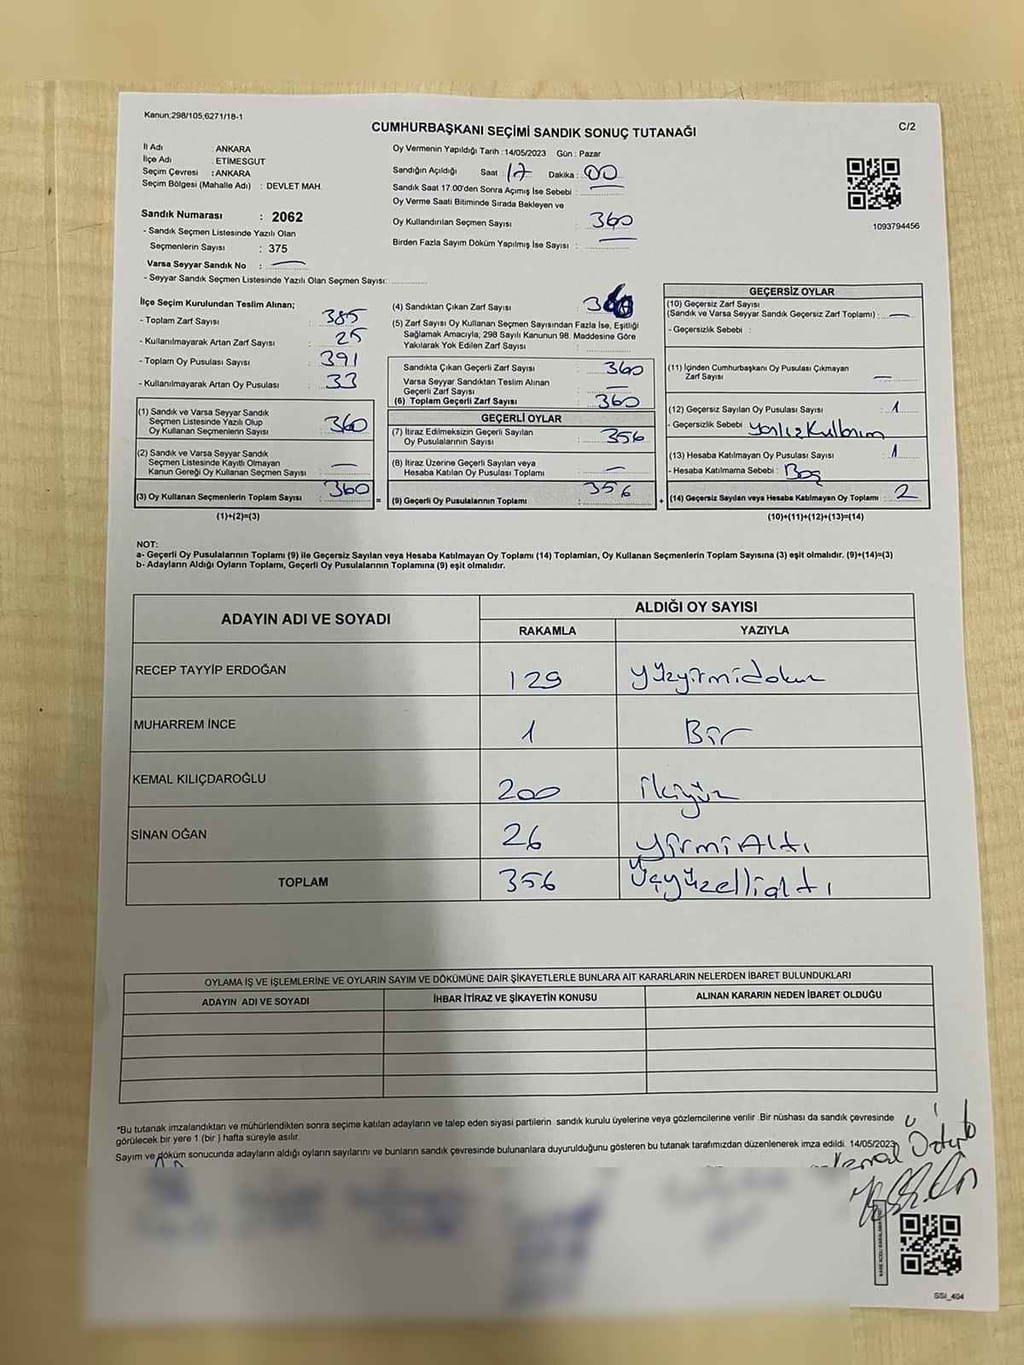 Kanun;298/105,6271/18-1
CUMHURBAŞKANI SEÇİMİ SANDIK SONUÇ TUTANAĞI
C/2
İl Adı : ANKARA
İlçe Adı : ETİMESGUT
Seçim Çevresi : ANKARA
Seçim Bölgesi (Mahalle Adı) : DEVLET MAH.
Sandık Numarası : 2062
- Sandık Seçmen Listesinde Yazılı Olan
Seçmenlerin Sayısı : 375
Varsa Seyyar Sandık No : —
- Seyyar Sandık Seçmen Listesinde Yazılı Olan Seçmen Sayısı:
Oy Vermenin Yapıldığı Tarih :14/05/2023 Gün : Pazar
Sandığın Açıldığı Saat 17 Dakika : 00
Sandık Saat 17.00'den Sonra Açımış İse Sebebi : —
Oy Verme Saati Bitiminde Sırada Bekleyen ve
Oy Kullandırılan Seçmen Sayısı : 360
Birden Fazla Sayım Döküm Yapılmış İse Sayısı : —
1093794456
İlçe Seçim Kurulundan Teslim Alınan;
- Toplam Zarf Sayısı : 385
- Kullanılmayarak Artan Zarf Sayısı : 25
- Toplam Oy Pusulası Sayısı : 391
- Kullanılmayarak Artan Oy Pusulası : 33
(1) Sandık ve Varsa Seyyar Sandık
Seçmen Listesinde Yazılı Olup
Oy Kullanan Seçmenlerin Sayısı : 360
(2) Sandık ve Varsa Seyyar Sandık
Seçmen Listesinde Kayıtlı Olmayan
Kanun Gereği Oy Kullanan Seçmen Sayısı : —
(3) Oy Kullanan Seçmenlerin Toplam Sayısı : 360
(1)+(2)=(3)
(4) Sandıktan Çıkan Zarf Sayısı :
(5) Zarf Sayısı Oy Kullanan Seçmen Sayısından Fazla İse, Eşitliği
Sağlamak Amacıyla; 298 Sayılı Kanunun 98. Maddesine Göre
Yakılarak Yok Edilen Zarf Sayısı :
Sandıkta Çıkan Geçerli Zarf Sayısı : 360
Varsa Seyyar Sandıktan Teslim Alınan
Geçerli Zarf Sayısı : —
(6) Toplam Geçerli Zarf Sayısı : 360
GEÇERLİ OYLAR
(7) İtiraz Edilmeksizin Geçerli Sayılan
Oy Pusulalarının Sayısı : 356
(8) İtiraz Üzerine Geçerli Sayılan veya
Hesaba Katılan Oy Pusulası Toplamı : —
(9) Geçerli Oy Pusulalarının Toplamı : 356
GEÇERSİZ OYLAR
(10) Geçersiz Zarf Sayısı
(Sandık ve Varsa Seyyar Sandık Geçersiz Zarf Toplamı) : —
- Geçersizlik Sebebi :
(11) İçinden Cumhurbaşkanı Oy Pusulası Çıkmayan
Zarf Sayısı : —
(12) Geçersiz Sayılan Oy Pusulası Sayısı : 1
- Geçersizlik Sebebi :
(13) Hesaba Katılmayan Oy Pusulası Sayısı : 1
- Hesaba Katılmama Sebebi : Boş
(14) Geçersiz Sayılan veya Hesaba Katılmayan Oy Toplamı : 2
(10)+(11)+(12)+(13)=(14)
NOT:
a- Geçerli Oy Pusulalarının Toplamı (9) ile Geçersiz Sayılan veya Hesaba Katılmayan Oy Toplamı (14) Toplamları, Oy Kullanan Seçmenlerin Toplam Sayısına (3) eşit olmalıdır. (9)+(14)=(3)
b- Adayların Aldığı Oyların Toplamı, Geçerli Oy Pusulalarının Toplamına (9) eşit olmalıdır.
ADAYIN ADI VE SOYADI
ALDIĞI OY SAYISI
RAKAMLA YAZIYLA
RECEP TAYYİP ERDOĞAN 129 yüzyirmidokuz
MUHARREM İNCE 1 Bir
KEMAL KILIÇDAROĞLU 200 İkiyüz
SİNAN OĞAN 26 yirmiAltı
TOPLAM 356 Üçyüzellialtı
OYLAMA İŞ VE İŞLEMLERİNE VE OYLARIN SAYIM VE DÖKÜMÜNE DAİR ŞİKAYETLERLE BUNLARA AİT KARARLARIN NELERDEN İBARET BULUNDUKLARI
ADAYIN ADI VE SOYADI İHBAR İTİRAZ VE ŞİKAYETİN KONUSU ALINAN KARARIN NEDEN İBARET OLDUĞU
*Bu tutanak imzalandıktan ve mühürlendikten sonra seçime katılan adayların ve talep eden siyasi partilerin sandık kurulu üyelerine veya gözlemcilerine verilir .Bir nüshası da sandık çevresinde
görülecek bir yere 1 (bir ) hafta süreyle asılır.
Sayım ve döküm sonucunda adayların aldığı oyların sayılarını ve bunların sandık çevresinde bulunanlara duyurulduğunu gösteren bu tutanak tarafımızdan düzenlenerek imza edildi. 14/05/2023
Kemal Öztürk
SSI_404